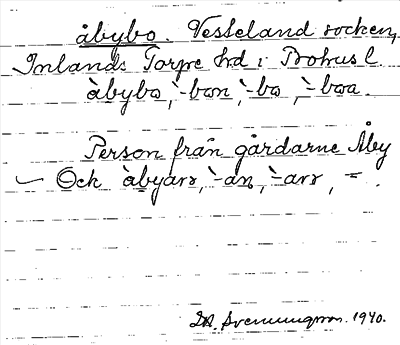 åbybo. Vesseland socken,
Inlands Torpe hd i Bohusl.
àbybo, `-bon, `-bo, `-boa.
Person från gårdarne Åby
Och àbyars, `-an, `-ars, =.
Svenningson. 1940.